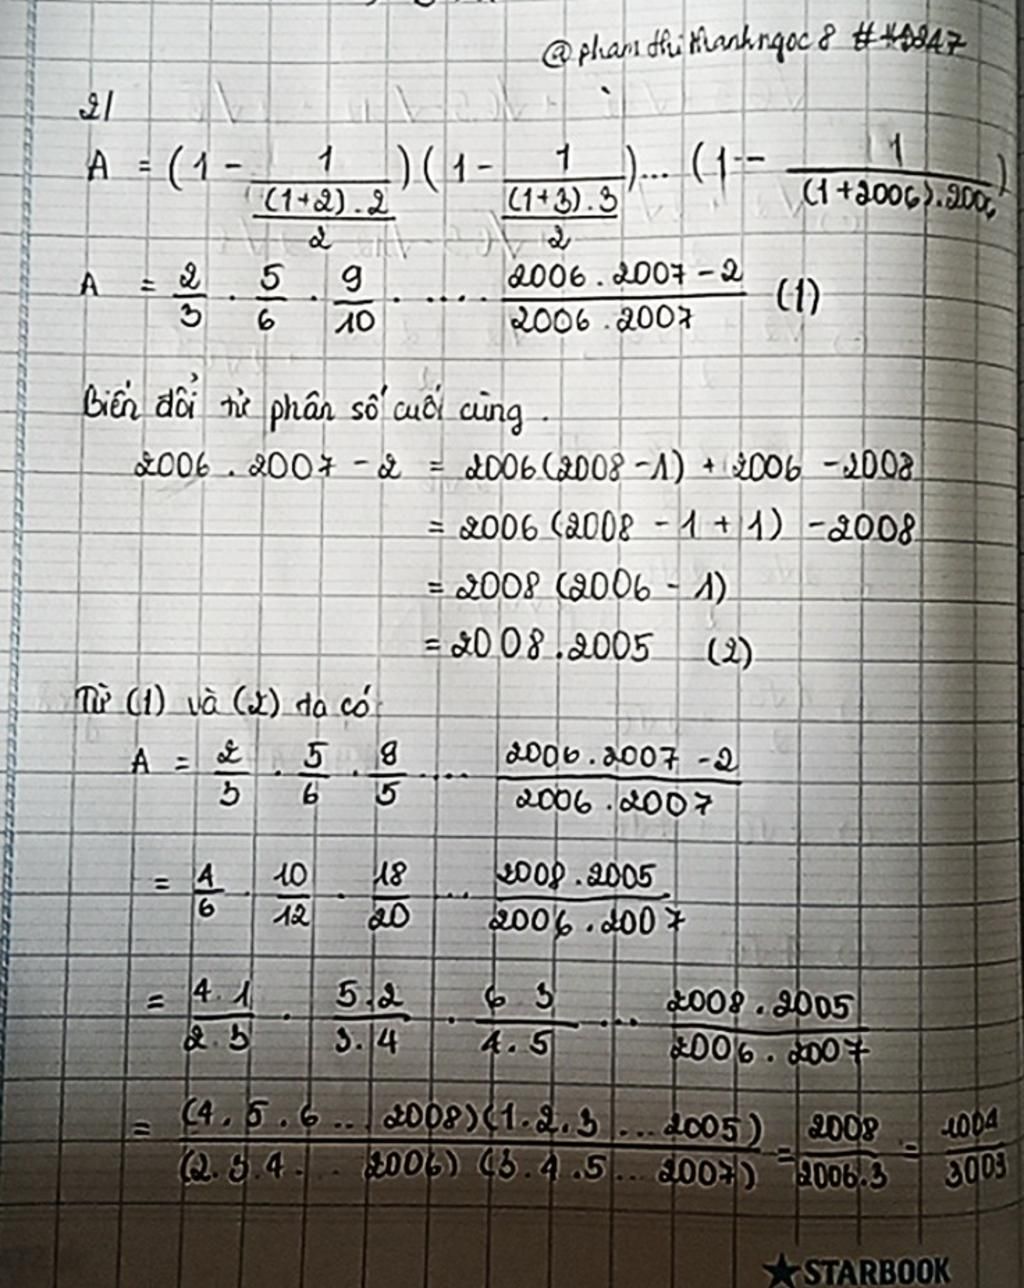 @phamthithanhngoc8
21
A = (1 - 1/((1+2).2/2)) (1 - 1/((1+3).3/2)) ... (1 - 1/((1+2006).2006))
A = 2/3 . 5/6 . 9/10 . .... (2006.2007-2)/(2006.2007) (1)
Biến đổi từ phân số cuối cùng.
2006.2007-2 = 2006(2008-1) + 2006 - 2008
= 2006(2008-1+1) - 2008
= 2008(2006-1)
= 2008.2005 (2)
Từ (1) và (2) ta có
A = 2/3 . 5/6 . 9/5 .... (2006.2007-2)/(2006.2007)
= 4/6 . 10/12 . 18/20 ... (2008.2005)/(2006.2007)
= (4.1)/(2.3) . (5.2)/(3.4) . (6 3)/(4.5) ... (2008.2005)/(2006.2007)
= ((4.5.6...2008)(1.2.3...2005))/((2.3.4...2006)(3.4.5...2007)) = 2008/(2006.3) = 1004/3009
★STARBOOK